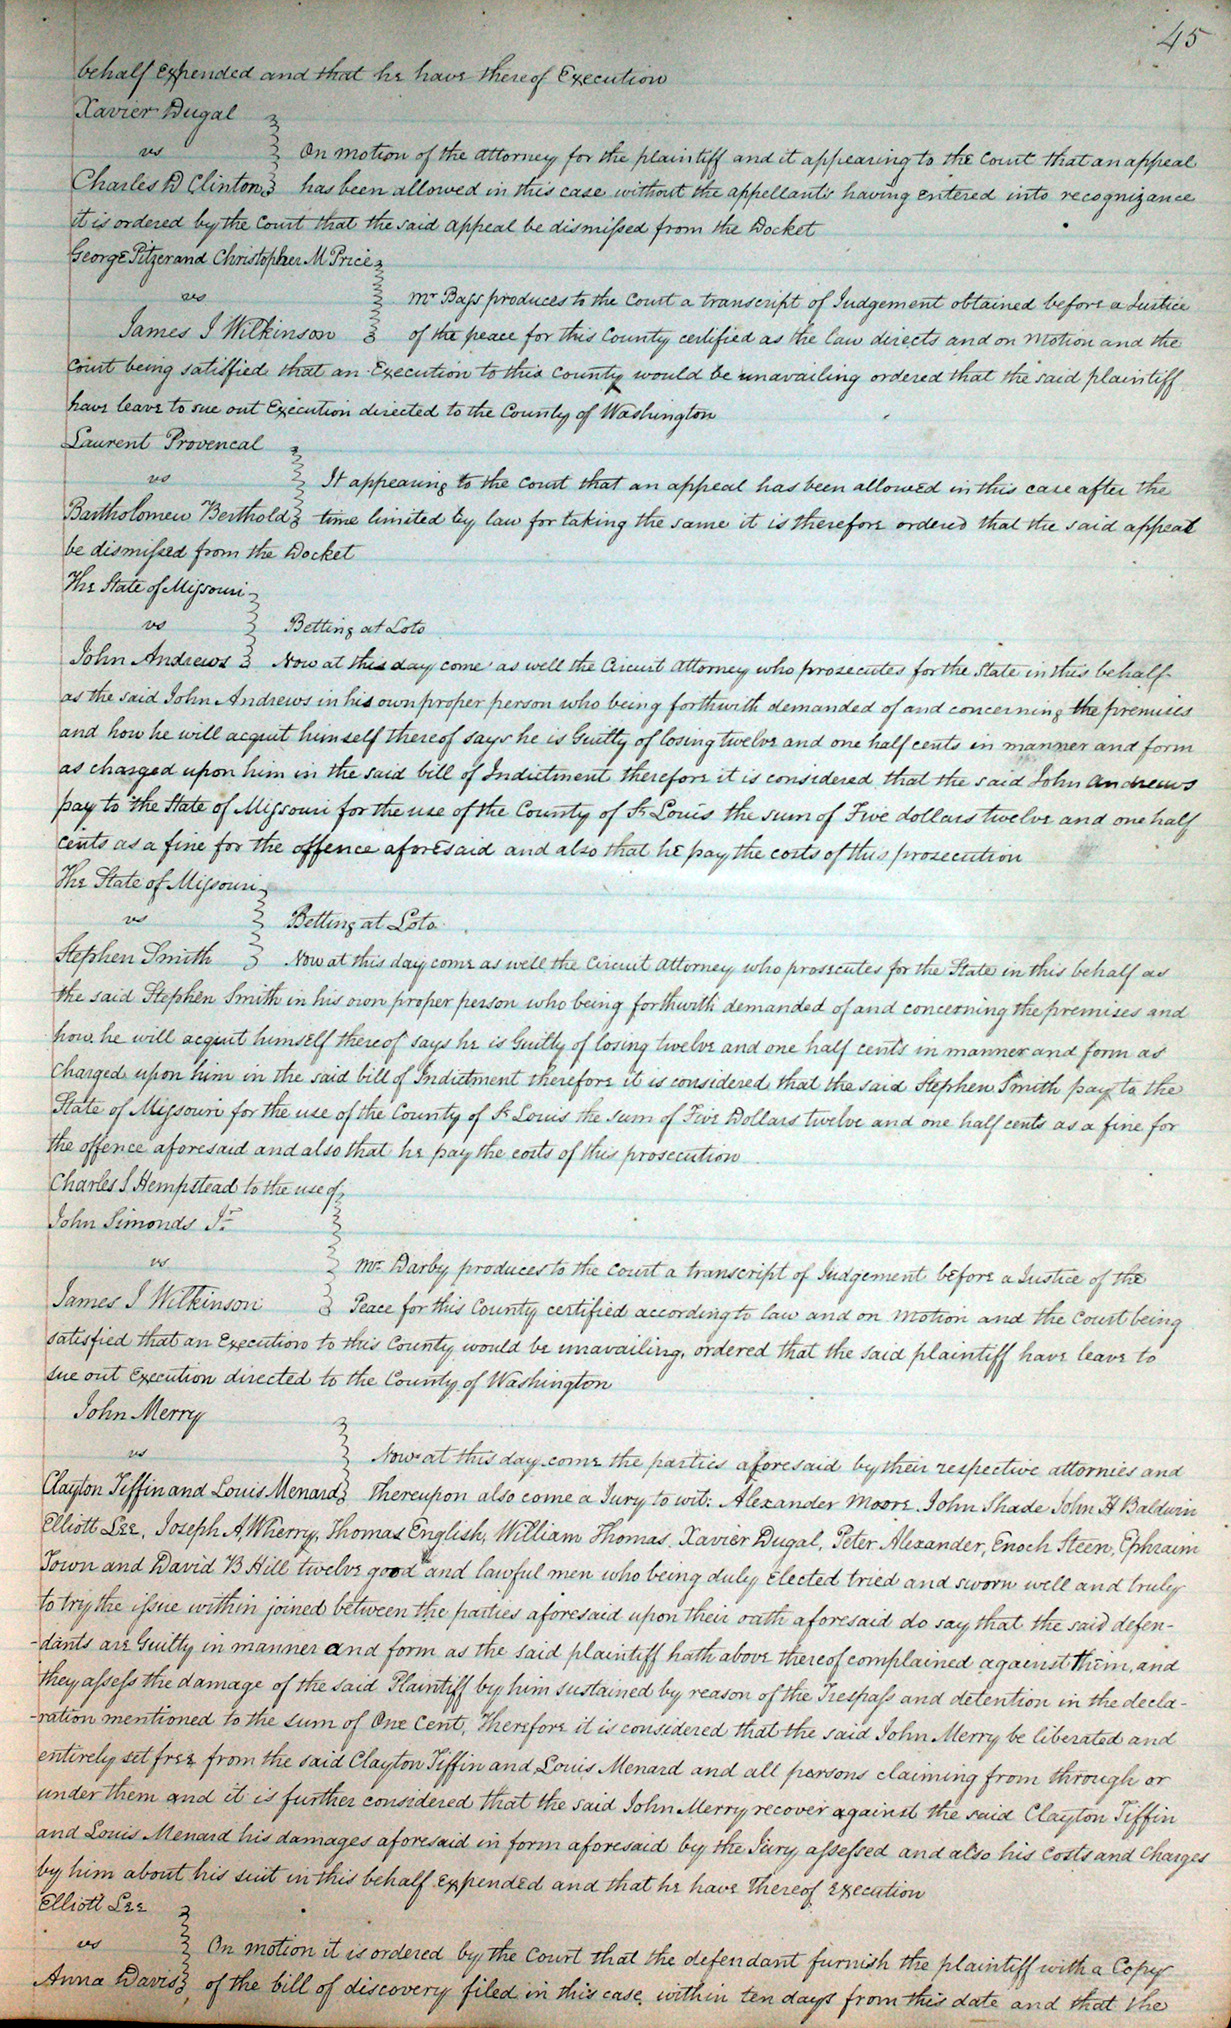 45
behalf expended and that he have thereof Execution
Xavier Dugal
vs
On motion of the attorney for the plaintiff and it appearing to the Court that an appeal
Charles D Clinton has been allowed in this case without the appellants having entered into recognizance
it is ordered by the Court that the said appeal be dismissed from the Docket
George Pitzer and Christopher M Price
vs
Mr Bass produces to the Court a transcript of Judgement obtained before a Justice
James J Wilkinson of the peace for this County certified as the law directs and on motion and the
Court being satisfied that an Execution to this County would be unavailing ordered that the said plaintiff
have leave to sue out Execution directed to the County of Washington
Laurent Provencal
vs
It appearing to the Court that an appeal has been allowed in this case after the
Bartholomew Berthold time limited by law for taking the same it is therefore ordered that the said appeal
be dismissed from the Docket
The State of Missouri
vs Betting at Loto
John Andrews Now at this day come as well the Circuit Attorney who prosecutes for the State in this behalf
as the said John Andrews in his own proper person who being forthwith demanded of and concerning the premises
and how he will acquit himself thereof says he is Guilty of losing twelve and one half cents in manner and form
as charged upon him in the said bill of Indictment therefore it is considered that the said John Andrews
pay to the State of Missouri for the use of the County of St Louis the sum of Five dollars twelve and one half
cents as a fine for the offence aforesaid and also that he pay the costs of this prosecution
The State of Missouri
vs Betting at Loto
Stephen Smith Now at this day come as well the Circuit Attorney who prosecutes for the State in this behalf as
the said Stephen Smith in his own proper person who being forthwith demanded of and concerning the premises and
how he will acquit himself thereof says he is Guilty of losing twelve and one half cents in manner and form as
charged upon him in the said bill of Indictment therefore it is considered that the said Stephen Smith pay to the
State of Missouri for the use of the County of St Louis the sum of Five Dollars twelve and one half cents as a fine for
the offence aforesaid and also that he pay the costs of this prosecution
Charles S Hempstead to the use of
John Simonds Jr
vs Mr Darby produces to the Court a transcript of Judgement before a Justice of the
James J Wilkinson Peace for this County certified according to law and on motion and the Court being
satisfied that an Execution to this County would be unavailing, ordered that the said plaintiff have leave to
sue out Execution directed to the County of Washington
John Merry
vs Now at this day come the parties aforesaid by their respective attornies and
Clayton Tiffin and Louis Menard Thereupon also come a Jury to wit: Alexander Moore John Shade John H Baldwin
Elliott Lee, Joseph A Wherry, Thomas English, William Thomas, Xavier Dugal, Peter Alexander, Enoch Steen, Ephraim
Town and David B Hill twelve good and lawful men who being duly elected tried and sworn well and truly
to try the issue within joined between the parties aforesaid upon their oath aforesaid do say that the said defen-
-dants are Guilty in manner and form as the said plaintiff hath above thereof complained against them, and
they assess the damage of the said Plaintiff by him sustained by reason of the Trespass and detention in the decla-
-ration mentioned to the sum of One Cent, Therefore it is considered that the said John Merry be liberated and
entirely set free from the said Clayton Tiffin and Louis Menard and all persons claiming from through or
under them and it is further considered that the said John Merry recover against the said Clayton Tiffin
and Louis Menard his damages aforesaid in form aforesaid by the Jury assessed and also his costs and charges
by him about his suit in this behalf expended and that he have thereof execution
Elliott Lee
vs On motion it is ordered by the Court that the defendant furnish the plaintiff with a Copy
Anna Davis of the bill of discovery filed in this case, within ten days from this date and that the